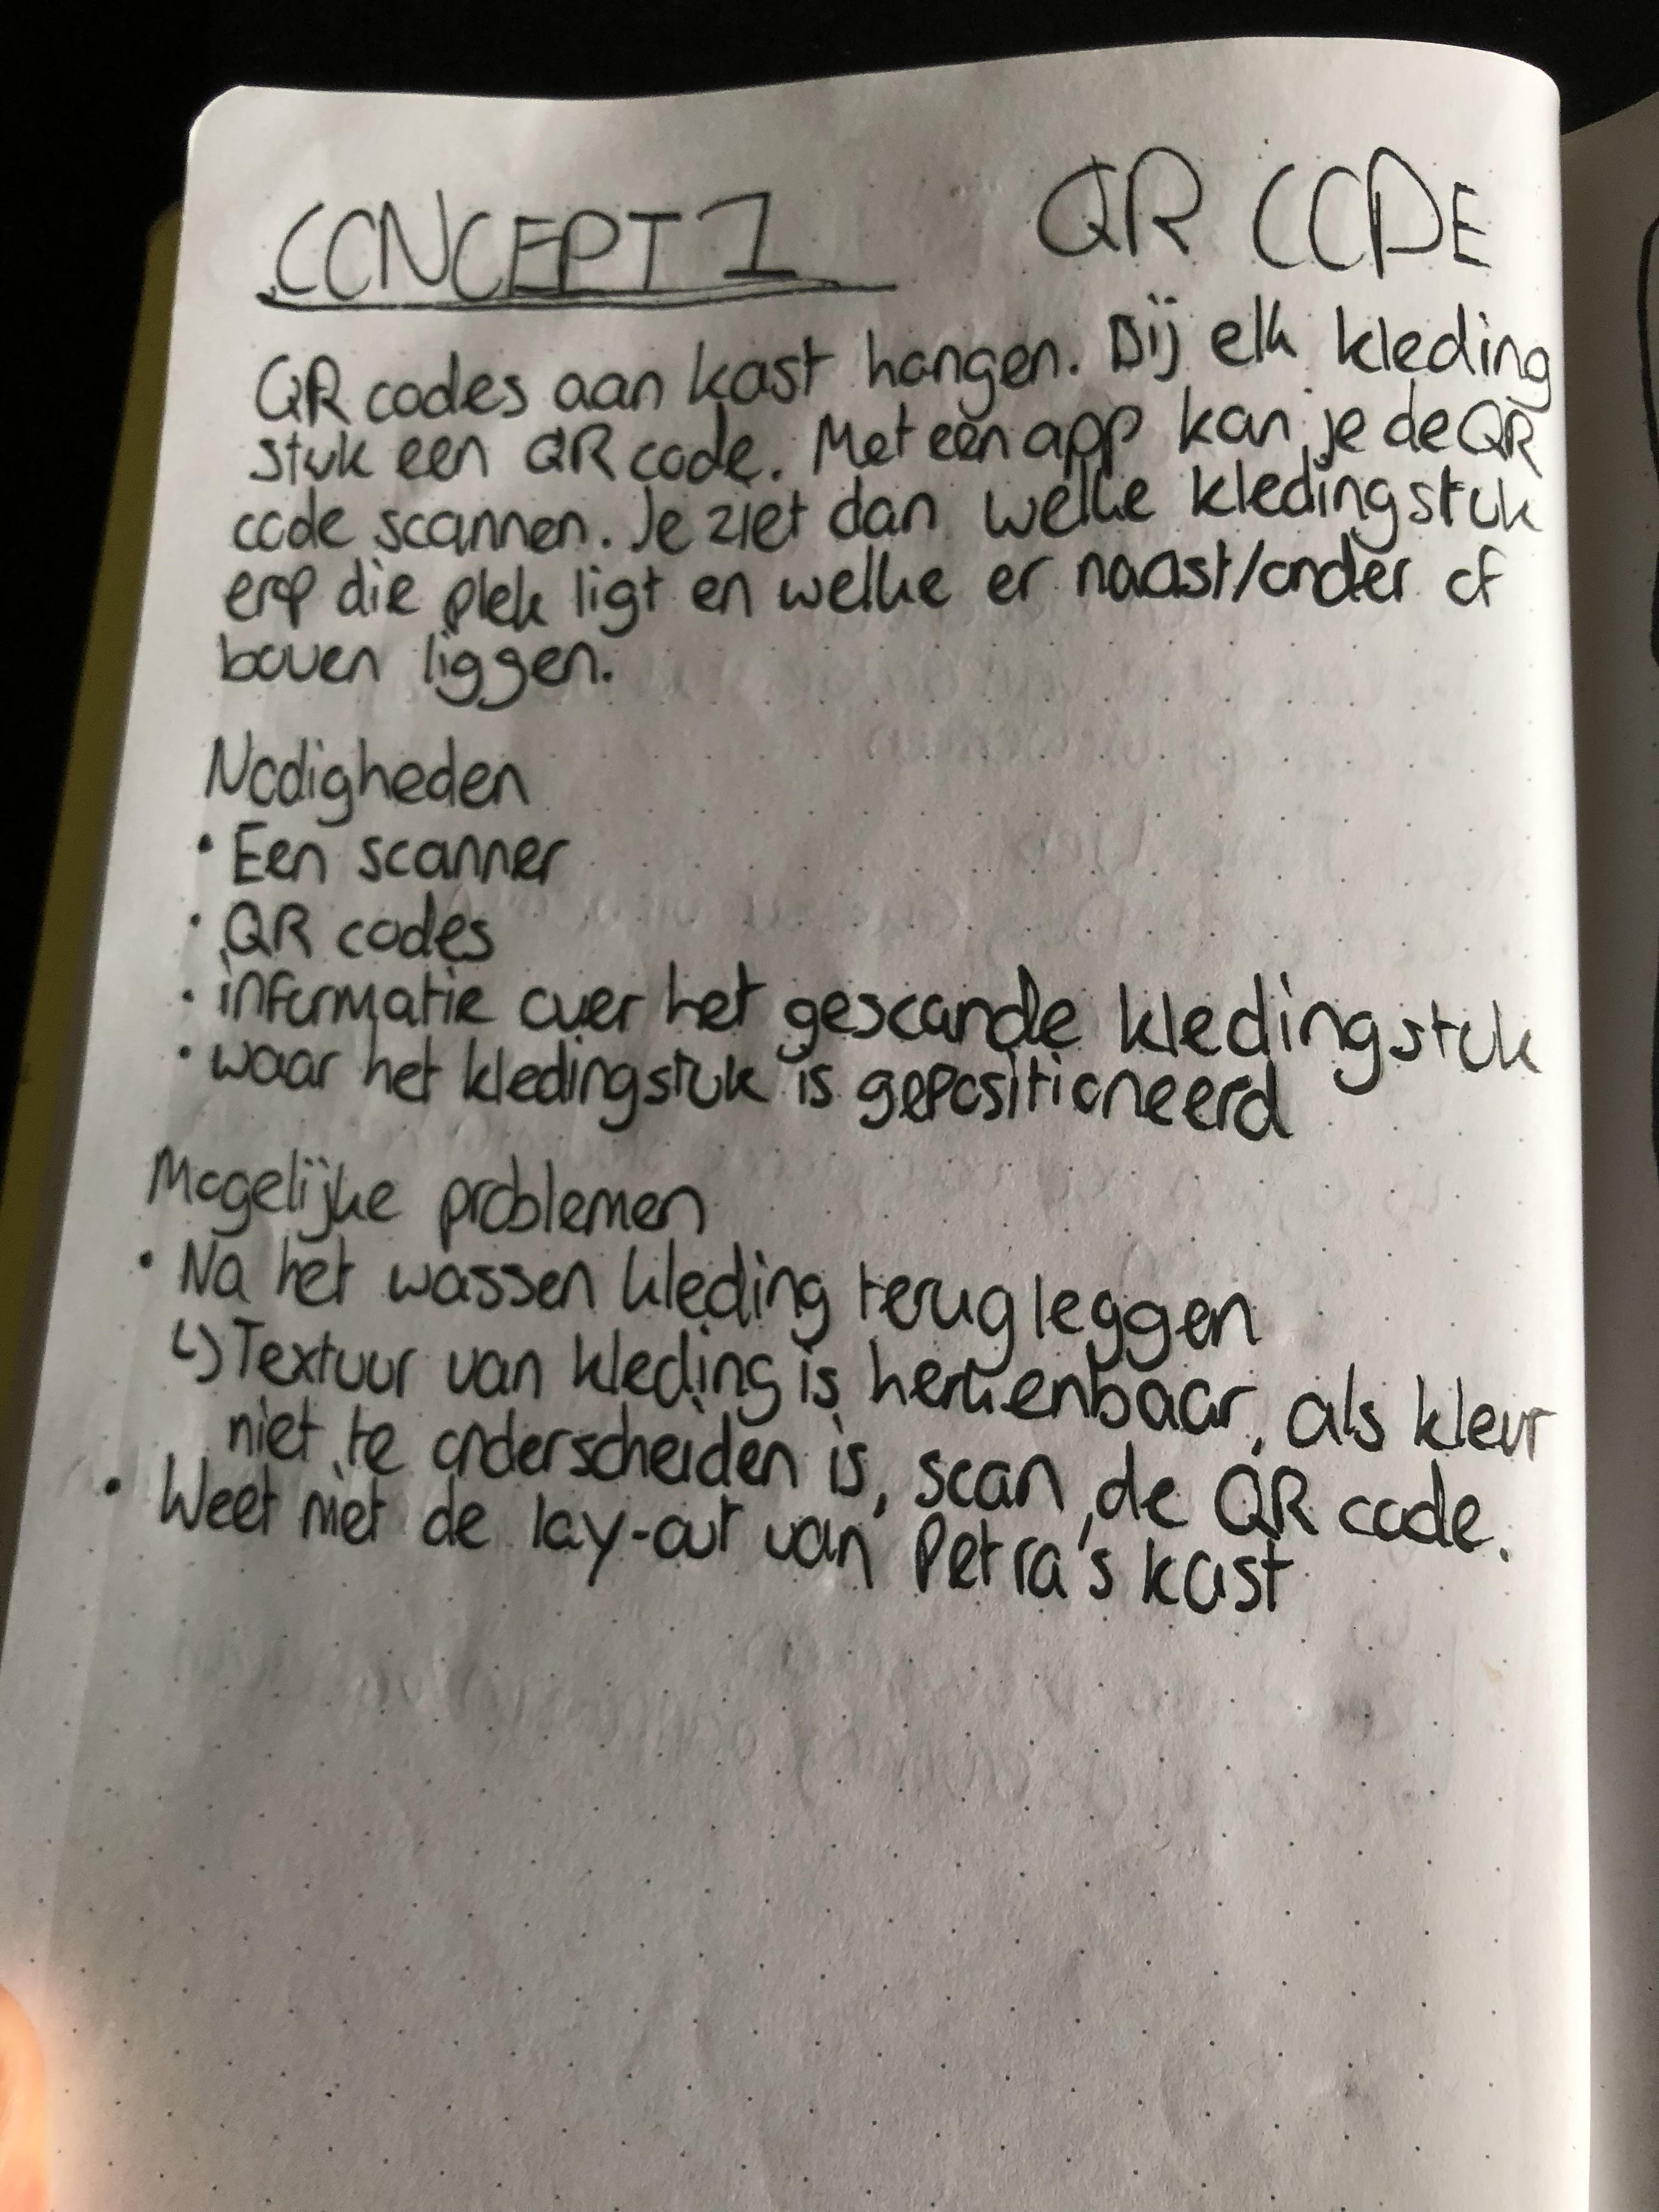 CONCEPT 1 QR CODE
QR codes aan kast hangen. Bij elk kleding
stuk een QR code. Met een app kan je de QR
code scannen. Je ziet dan welke kledingstuk
erop die plek ligt en welke er naast/onder of
boven liggen.
Nodigheden
• Een scanner
• QR codes
• informatie over het gescande kledingstuk
• waar het kledingstuk is gepositioneerd
Mogelijke problemen
• Na het wassen kleding terugleggen
↳ Textuur van kleding is herkenbaar, als kleur
niet te onderscheiden is, scan de QR code.
• Weet niet de lay-out van Petra's kast